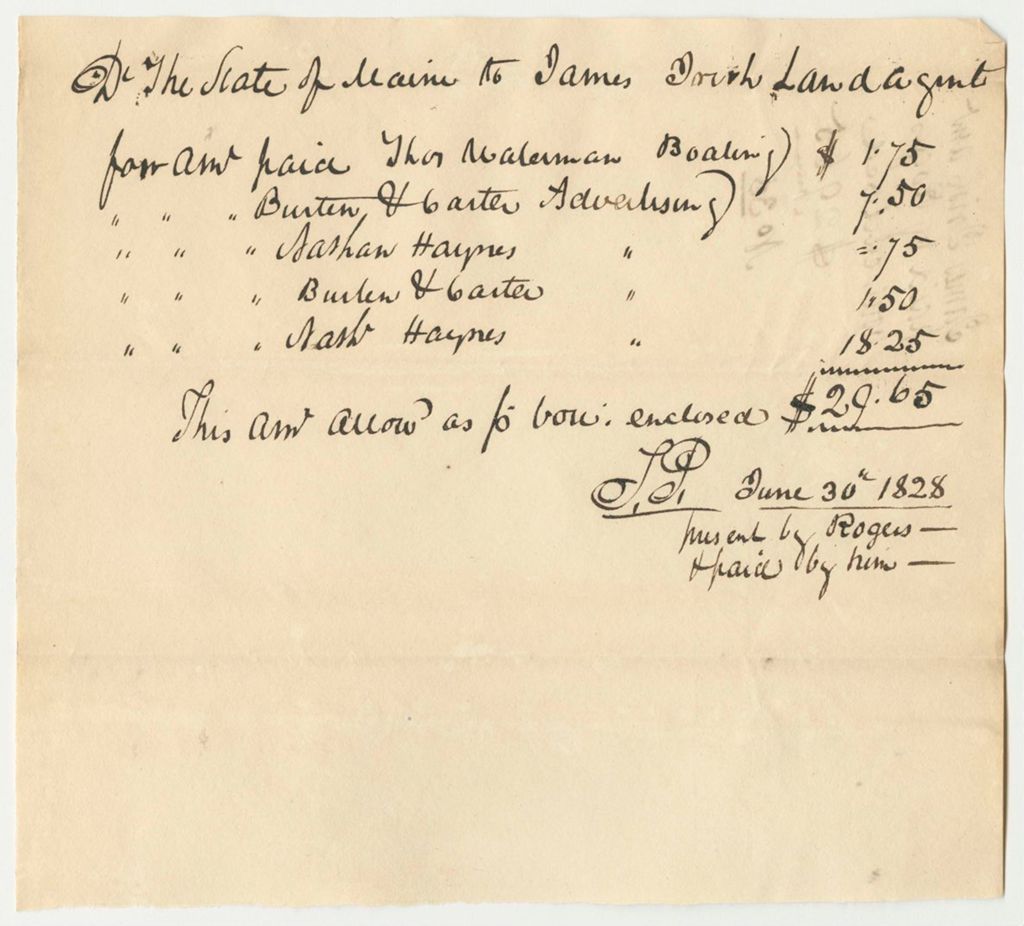 Dr The State of Maine to James Irish Land Agent
for Amt paid Thos Waterman Boating $ 1.75
" " " Burton & Carter Advertising 7.50
" " " Nathan Haynes " =.75
" " " Burton & Carter " 1.50
" " " Nathl Haynes " 18.25
This Amt allowd as pr vou. enclosed $29.65
June 30th 1828
present by Rogers —
& paid by him —